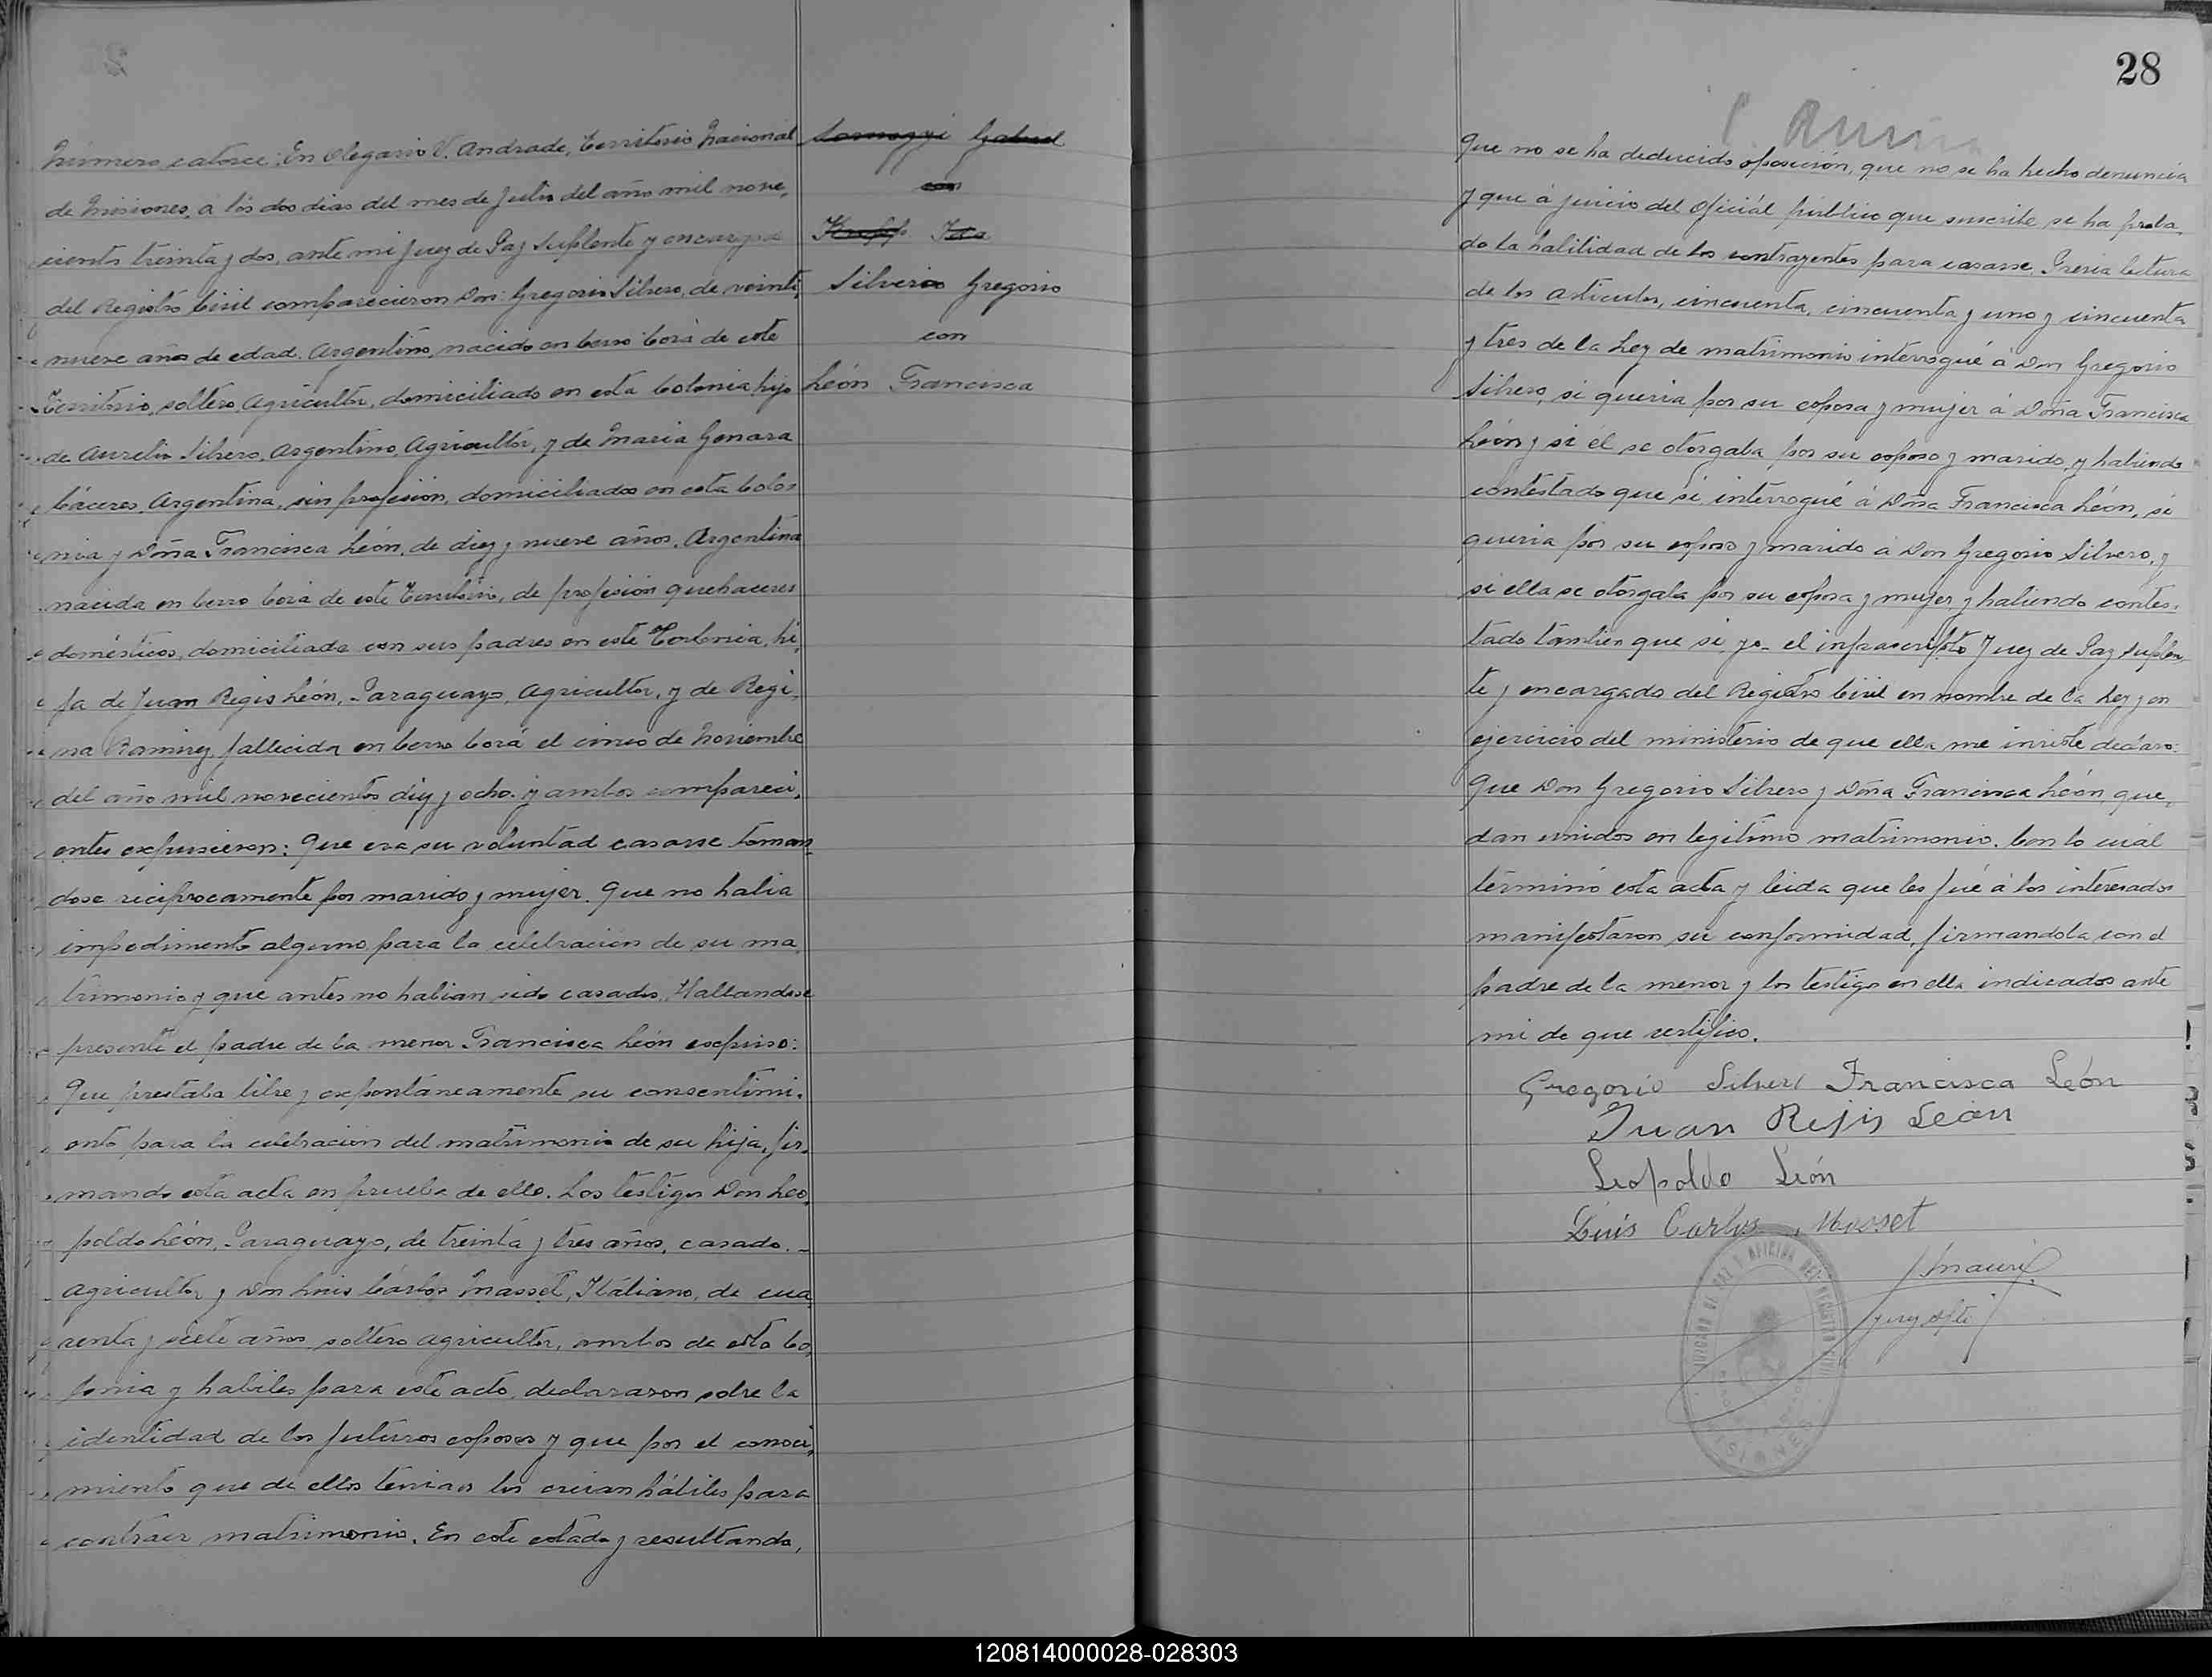 Número catorce: En Olegario V. Andrade, Territorio Nacional
de Misiones, a los dos dias del mes de Julio del año mil nove,
cientos treinta y dos, ante mi Juez de Paz Suplente y encargado
del Registro Civil comparecieron Don: Gregorio Silvero, de veinti,
nueve años de edad. Argentino, nacido en Cerro Corá de este
Territorio, soltero, Agricultor, domiciliado en esta Colonia, hijo
de Aurelio Silvero, Argentino, Agricultor, y de Maria Genara
Cáceres, Argentina, sin profesión, domiciliados en esta Colo,
nia y Doña Francisca León, de diez y nueve años, Argentina
nacida en Cerro Corá de este Territorio, de profesión quehaceres
domésticos, domiciliada con sus padres en este Colonia, hi,
ja de Juan Regis León, Paraguayo, Agricultor, y de Regi,
na Ramirez, fallecida en Cerro Corá el cinco de Noviembre
del año mil novecientos diez y ocho. y ambos compareci,
entes expusieron: Que era su voluntad casarse toman
dose reciprocamente por marido y mujer. Que no habia
impedimento alguno para la celebración de su ma,
trimonio y que antes no habian sido casados. Hallandose
presente el padre de la menor Francisca León expuso:
Que prestaba libre y expontáneamente su consentimi,
ento para la celebración del matrimonio de su hija, fir,
mando esta acta en prueba de ello. Los testigos Don Leo,
poldo León, Paraguayo, de treinta y tres años, casado. –
agricultor y Don Luis Cárlos Masset, Italiano, de cua,
renta y siete años soltero agricultor, ambos de esta Co,
lonia y habiles para este acto, declararon sobre la
identidad de los futuros esposos y que por el conoci,
miento que de ellos tenian los creian hábiles para
contraer matrimonio. En este estado y resultando,
Somogyi Gabriel
con
Krapp Ida
Silverio Gregorio
con
León Francisca
28
Que no se ha deducido oposición, que no se ha hecho denuncia
y que á juicio del Oficiál público que suscribe se ha proba,
do la habilidad de los contrayentes para casarse. Previa lectura
de los articulos, cincuenta, cincuenta y uno y cincuenta
y tres de la Ley de matrimonio interrogué á Don Gregorio
Silvero, si queria por su esposa y mujer á Doña Francisca
León y si él se otorgaba por su esposo y marido, y habiendo
contestado que si, interrogué á Doña Francisca León, si
queria por su esposo y marido á Don Gregorio Silvero, y
si ella se otorgaba por su esposa y mujer, y habiendo contes,
tado tambien que si, yo- el infrascripto Juez de Paz Suplen
te y encargado del Registro Civil en nombre de la Ley y en
ejercicio del ministerio de que ella me inviste declaro:
Que Don Gregorio Silvero y Doña Francisca León, que,
dan unidos en legitimo matrimonio. Con lo cuál
términó esta acta y leida que les fué á los interesados
manifestaron su conformidad, firmandola con el
padre de la menor y los testigos en ella indicados ante
mi de que certifico.
Gregorio Silvero Francisca León
Juan Rejis León
Leopoldo León
Luis Carlos Masset
Juez Splte
JUZGADO DE PAZ Y OFICINA DEL REGISTRO CIVIL
MISIONES
120814000028-028303